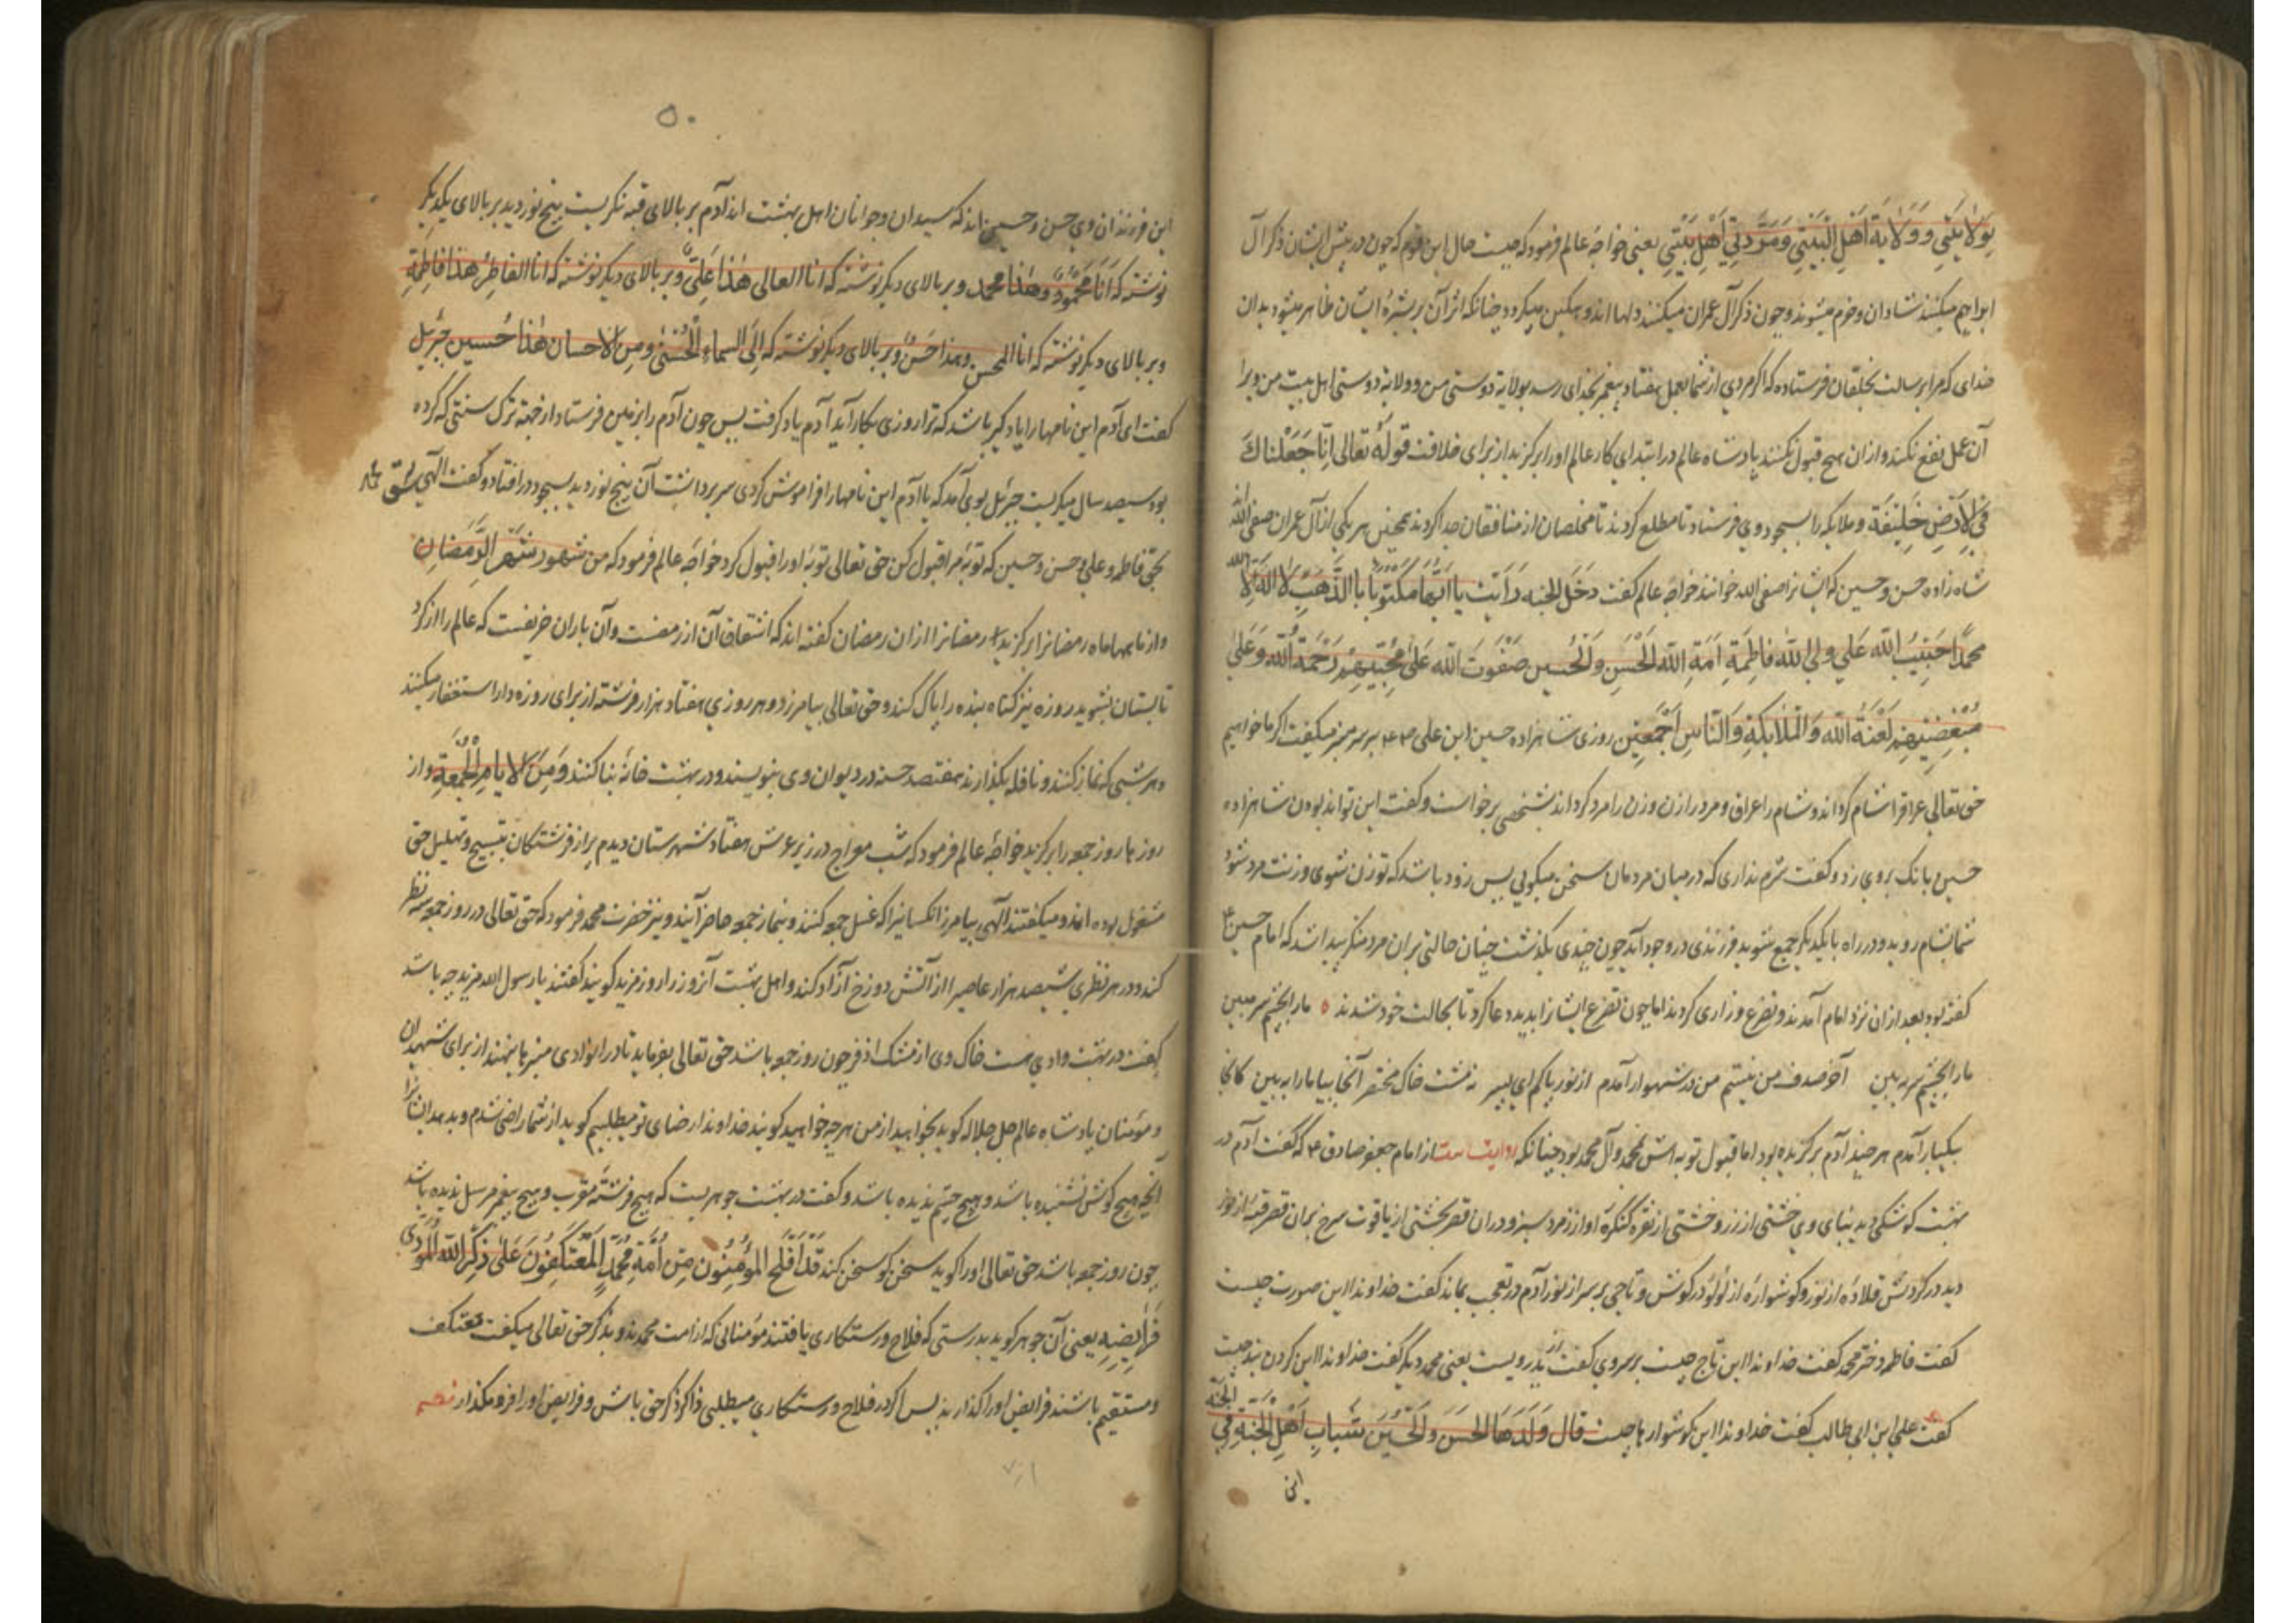 بولایتی و ولایة اهل البیتی ومرّدتی اهل بیتی یعنی خواجهٔ عالم فرمود که چیست حال این قوم که چون در پیش ایشان ذکر آل
ابراهیم میکنند شادان وخرم میشوند وچون ذکر آل عمران میکنند دلها اندوهگین میگردد چنانکه اثر آن بر بشرهٔ ایشان ظاهر میشود بدان
خدای که مرا برسالت بخلقان فرستاده که اگر مردی از شما بعمل هفتاد پیغمبر بخدای رسد بولایة دوستی من و ولایة دوستی اهل بیت من ویرا
آن عمل نفع نکند وازان هیچ قبول نکنند پادشاه عالم در ابتدای کار عالم اورا برگزید از برای خلافت قوله تعالی انّا جعلناک
فی الارض خلیفة وملایکه را بسجود وی فرستاد تا مطلع کردند تا مخلصان از منافقان جدا کردند همچنین هر یکی از آل عمران صفی الله اند
شاه زاده حسن وحسین که ایشانرا صفی الله خوانند خواجهٔ عالم گفت دخل الجنه رأیت بابها مکتوبا بالذهب لا اله الا الله
محمّدا حبیب الله علی ولی الله فاطمة امة الله الحسن والحسین صفوت الله علی محبّیهم رحمة الله وعلی
مبغضیهم لعنة الله والملایکة والناس اجمعین روزی شاهزاده حسین ابن علی ع م بر سر منبر میگفت اگر ما خواهیم
حق تعالی عراقرا شام گرداند وشام را عراق ومرد را زن وزن را مرد گرداند شخصی برخواست وگفت این تواند بودن شاهزاده
حسین بانک بروی زد وگفت شرم نداری که در میان مردمان سخن میگویی پس زود باشد که تو زن شوی وزنت مرد شود
شما بشام روید ودر راه بایکدیگر جمع شوید فرزندی در وجود آید چون چندی بگذشت چنان حالتی بران مرد منکر پیدا شد که امام حسین ع
گفته بود بعد ازان نزد امام آمدند وتضرع وزاری کردند امام چون تضرع ایشانرا بدید دعا کرد تا بحالت خود شدند ه مارا بچشم سر مبین
مارا بچشم سر ببین آخر صدف من نیستم من در شهوار آمدم از نور پاکم ای پسر نه مشت خاک مختصر آنجا بیا مارا ببین کانجا
بکبار آمدم هر چند آدم برگزیده بود اما قبول توبه اش بمحمد وآل محمد بود چنانکه روایت ست از امام جعفر صادق ع م که گفت آدم در
بهشت کوشکی دید بنای وی خشتی از زر وخشتی از نقره کنگرهٔ او از زمرد سبز ودران قصر تختی از یاقوت سرخ بران قصر قبهٔ از نور
دید در گردنش قلادهٔ از نور وگوشوارهٔ از لؤلؤ در گوش وتاجی بر سر از نور آدم در تعجب بماند گفت خداوندا این صورت چیست
گفت فاطمه دختر محمد گفت خداوندا این تاج چیست بر سر وی گفت پدر ویست یعنی محمد دیگر گفت خداوندا این گردن بند چیست
گفت علی ابن ابی طالب گفت خداوندا این گوشوارها چیست قال ولدها الحسن والحسین شباب اهل الجنة فی الجنه
این
۵۰
این فرزندان وی حسن وحسین اند که سیدان وجوانان اهل بهشت اند آدم بر بالای قبه نگریست پنج نور دید بر بالای یکدیگر
نوشته که انا محمود وهذا محمد وبر بالای دیگر نوشته که انا العالی هذا علی وبر بالای دیگر نوشته که انا الفاطر هذا فاطمة
وبر بالای دیگر نوشته که انا المحسن وهذا حسن وبر بالای دیگر نوشته که الی السماء الحسنی ومن الاحسان هذا حسین جبرئیل
گفت ای آدم این نامهارا یاد گیر باشد که ترا روزی بکار آید آدم یاد گرفت پس چون آدم را بزمین فرستاد از جهة ترک سنتی که کرده
بود سیصد سال میگریست جبرئیل بوی آمد که یا آدم این نامهارا فراموش کردی سر برداشت آن پنج نور دید بسجود در افتاد وگفت الهی بحق محمد
بحق فاطمه وعلی وحسن وحسین که توبهٔ مرا قبول کن حق تعالی توبهٔ اورا قبول کرد خواجهٔ عالم فرمود که من شهود شهر الرمضان
واز ماهها ماه رمضانرا برگزید رمضانرا ازان رمضان گفته اند که اشتقاق آن از رمضست وآن باران خریفست که عالم را از گرد
تابستان بشوید روزه نیز گناه بنده را پاک کند وحق تعالی بیامرزد وهر روزی هفتاد هزار فرشته از برای روزه دار استغفار میکنند
وهر شبی که نماز کنند ونافله بگذارند هفتصد حسنه در دیوان وی بنویسند ودر بهشت خانهٔ بنا کنند ومن الایام الجمعة واز
روزها روز جمعه را برگزید خواجهٔ عالم فرمود که شب معراج در زیر عرش هفتاد شهرستان دیدم پر از فرشتگان بتسبیح وتهلیل حق
مشغول بوده اند ومیگفتند الهی بیامرز آنکسانیرا که غسل جمعه کنند وبنماز جمعه حاضر آیند ونیز حضرت محمد فرمود که حق تعالی در روز جمعه سه نظر
کند ودر هر نظری سیصد هزار عاصیرا از آتش دوزخ آزاد کند واهل بهشت آنروز را روز مزید گویند گفتند یا رسول الله مزید چه باشد
گفت در بهشت وادی هست خاک وی از مشک اذفر چون روز جمعه باشد حق تعالی بفرماید تا در انوادی منبرها بنهند از برای شهیدان
ومؤمنان پادشاه عالم جل جلاله گوید بخواهید از من هر چه خواهید گویند خداوندا رضای تو میطلبیم گوید از شما راضی شدم وبدهد ایشانرا
آنچه هیچ گوش نشنیده باشد وهیچ چشم ندیده باشد وگفت در بهشت جوهریست که هیچ فرشتهٔ مقرب وهیچ پیغمبر مرسل ندیده باشد
چون روز جمعه باشد حق تعالی اورا گوید سخن گو سخن کند قد افلح المؤمنون من امة محمد المعتکفون علی ذکر الله المؤدی
فرایضه یعنی آن جوهر گوید بدرستی که فلاح ورستگاری یافتند مؤمنانی که از امت محمدند وبذکر حق تعالی میگفت معتکف
ومستقیم باشند فرایض اورا گذارند پس اگر در فلاح ورستگاری میطلبی ذاکر ذکر حق باش وفرایض اورا فرو مگذار